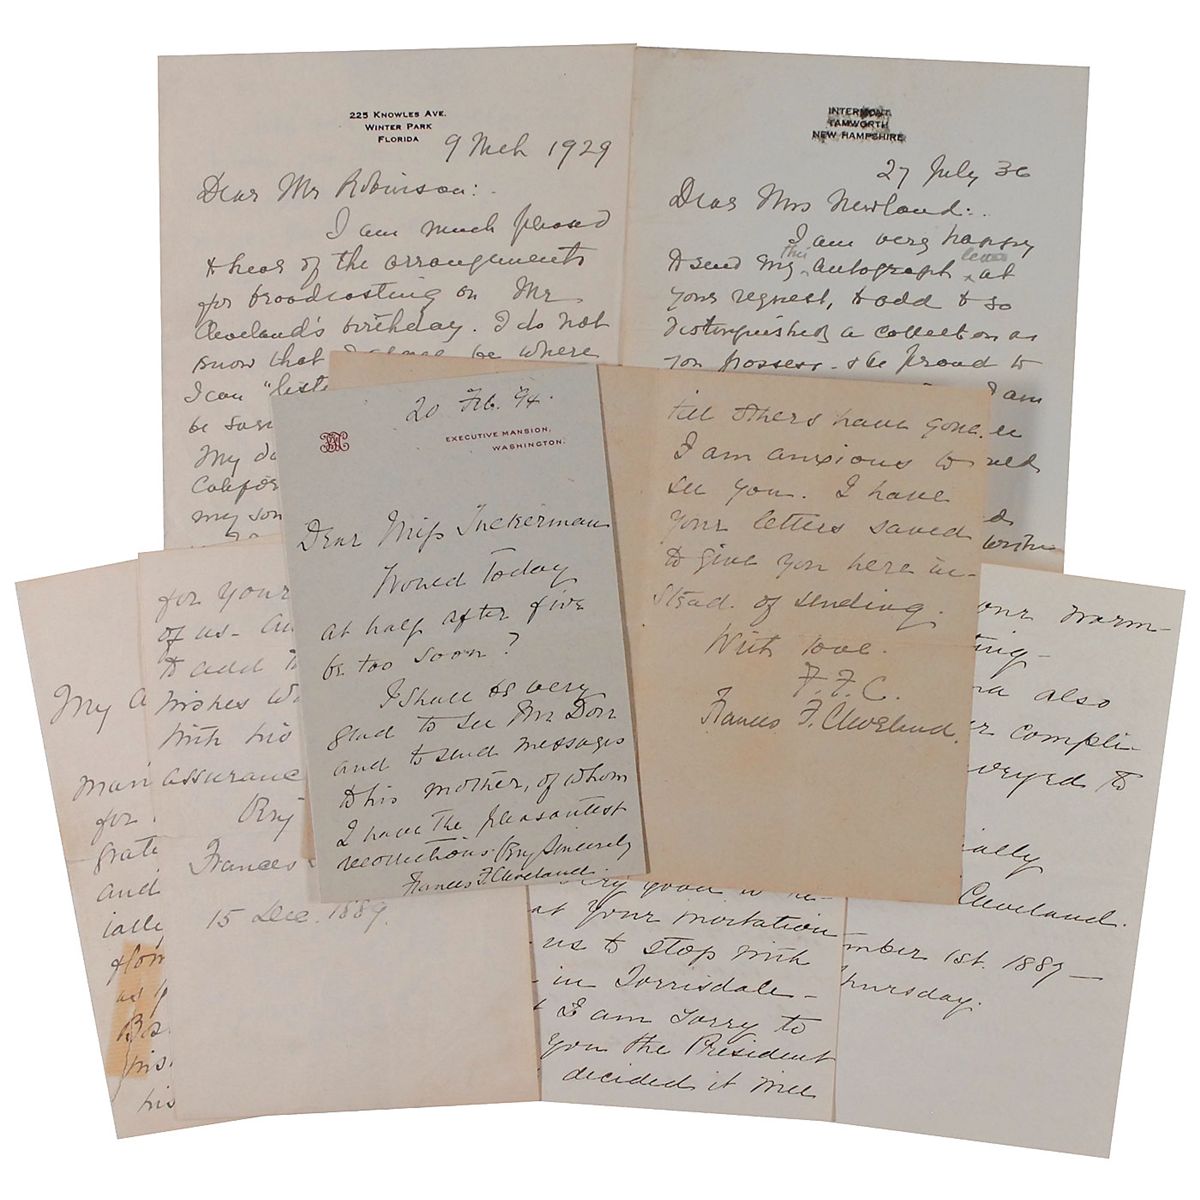 225 KNOWLES AVE.
WINTER PARK
FLORIDA
9 Mch 1929
Dear Mr Robinson:
I am much pleased
to hear of the arrangements
for broadcasting on Mr
Cleveland's birthday. I do not
know that I shall be where
I can "liste
be
My da
Califor
my son
INTERMONT
TAMWORTH
NEW HAMPSHIRE
27 July 36
Dear Mrs Newland:
I am very happy
to send my this autograph letter at
your request, to add to so
distinguished a collection as
you possess & be proud to
I am
20 Feb. '94.
EXECUTIVE MANSION,
WASHINGTON.
Dear Miss Tuckerman
Would today
at half after five
be too soon?
I shall be very
glad to see Mr Dorr
and to send messages
to his mother, of whom
I have the pleasantest
recollections. Very Sincerely
Frances F. Cleveland.
till others have gone.
I am anxious to
see you. I have
your letters saved
to give you here in-
stead of sending.
With love.
F. F. C.
Frances F. Cleveland.
My
Man
for
grate
and
ially
as
his
for your
of us-
to add
wishes
with his
assurance
Very
Frances
15 Dec. 1889.
very good
at your invitation
us to stop with
in Torrisdale-
I am sorry to
you the President
decided it
our warm-
ting-
also
er compli-
veyed to
ially
Cleveland.
mber 1st. 1887-
hursday.